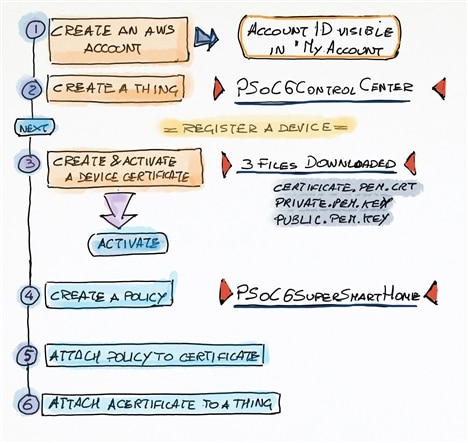 1 CREATE AN AWS ACCOUNT
ACCOUNT ID VISIBLE
IN "MY ACCOUNT
2 CREATE A THING
PSOC6CONTROLCENTER
NEXT
= REGISTER A DEVICE =
3 CREATE & ACTIVATE
A DEVICE CERTIFICATE
3 FILES DOWNLOADED
CERTIFICATE.PEM.CRT
PRIVATE.PEM.KEY
PUBLIC.PEM.KEY
ACTIVATE
4 CREATE A POLICY
PSOC6SUPERSMARTHOME
5 ATTACH POLICY TO CERTIFICATE
6 ATTACH ACERTIFICATE TO A THING